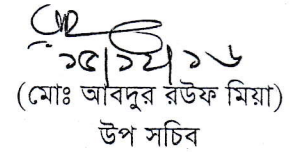 ১৫/১২/১৬
(মোঃ আবদুর রউফ মিয়া)
উপ সচিব